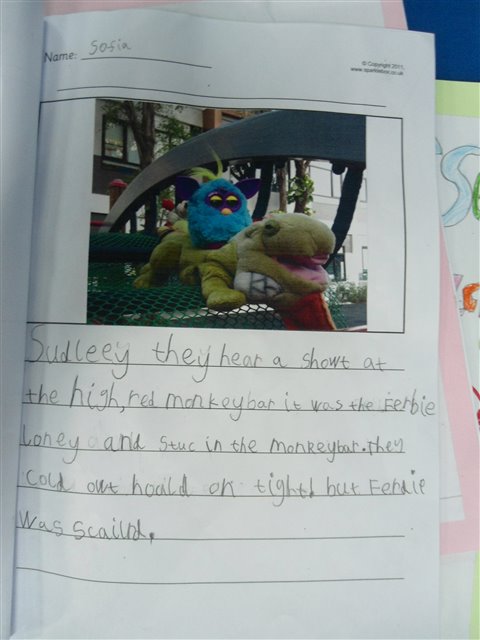 Name: Sofia
© Copyright 2011,
www.sparklebox.co.uk
Sudleey they hear a showt at
the high, red monkeybar it was the Eerbie
loney and stuc in the monkeybar. they
cold out hoald on tight! but Ferdie
was scaild.